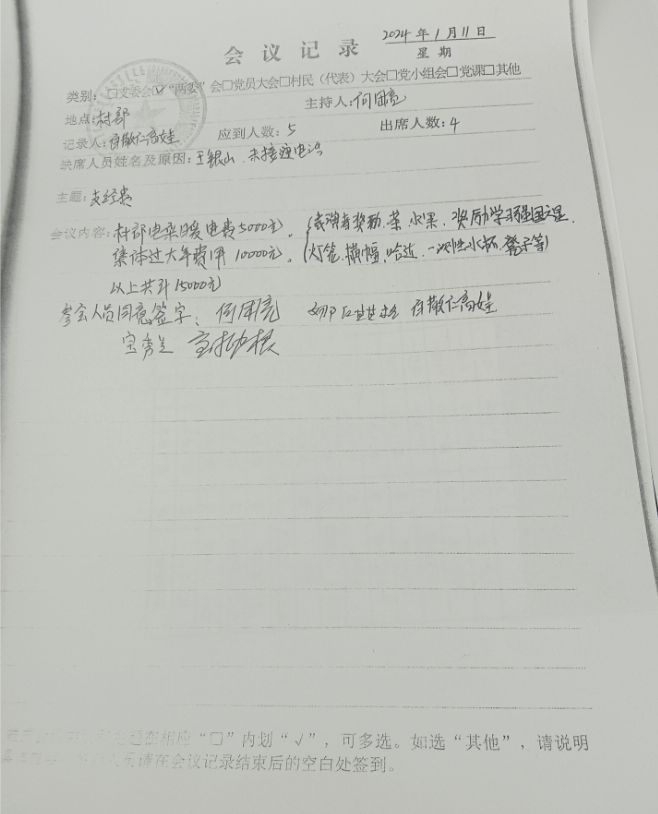 2024年1月11日
会议记录
星期
类别：□支委会☑“两委”会□党员大会□村民（代表）大会□党小组会□党课□其他
主持人：何国亮
地点：村部
记录人：敬仁高娃 应到人数：5 出席人数：4
缺席人员姓名及原因：王银山 未接通电话
主题：支经费
会议内容：村部电采暖电费5000元。
集体过大年费用10000元。(灯笼、横幅、哈达、一次性水杯、凳子等)
以上共计15000元
参会人员同意签字：何国亮 敬仁高娃
宝秀兰
在相应“□”内划“√”，可多选。如选“其他”，请说明
请在会议记录结束后的空白处签到。